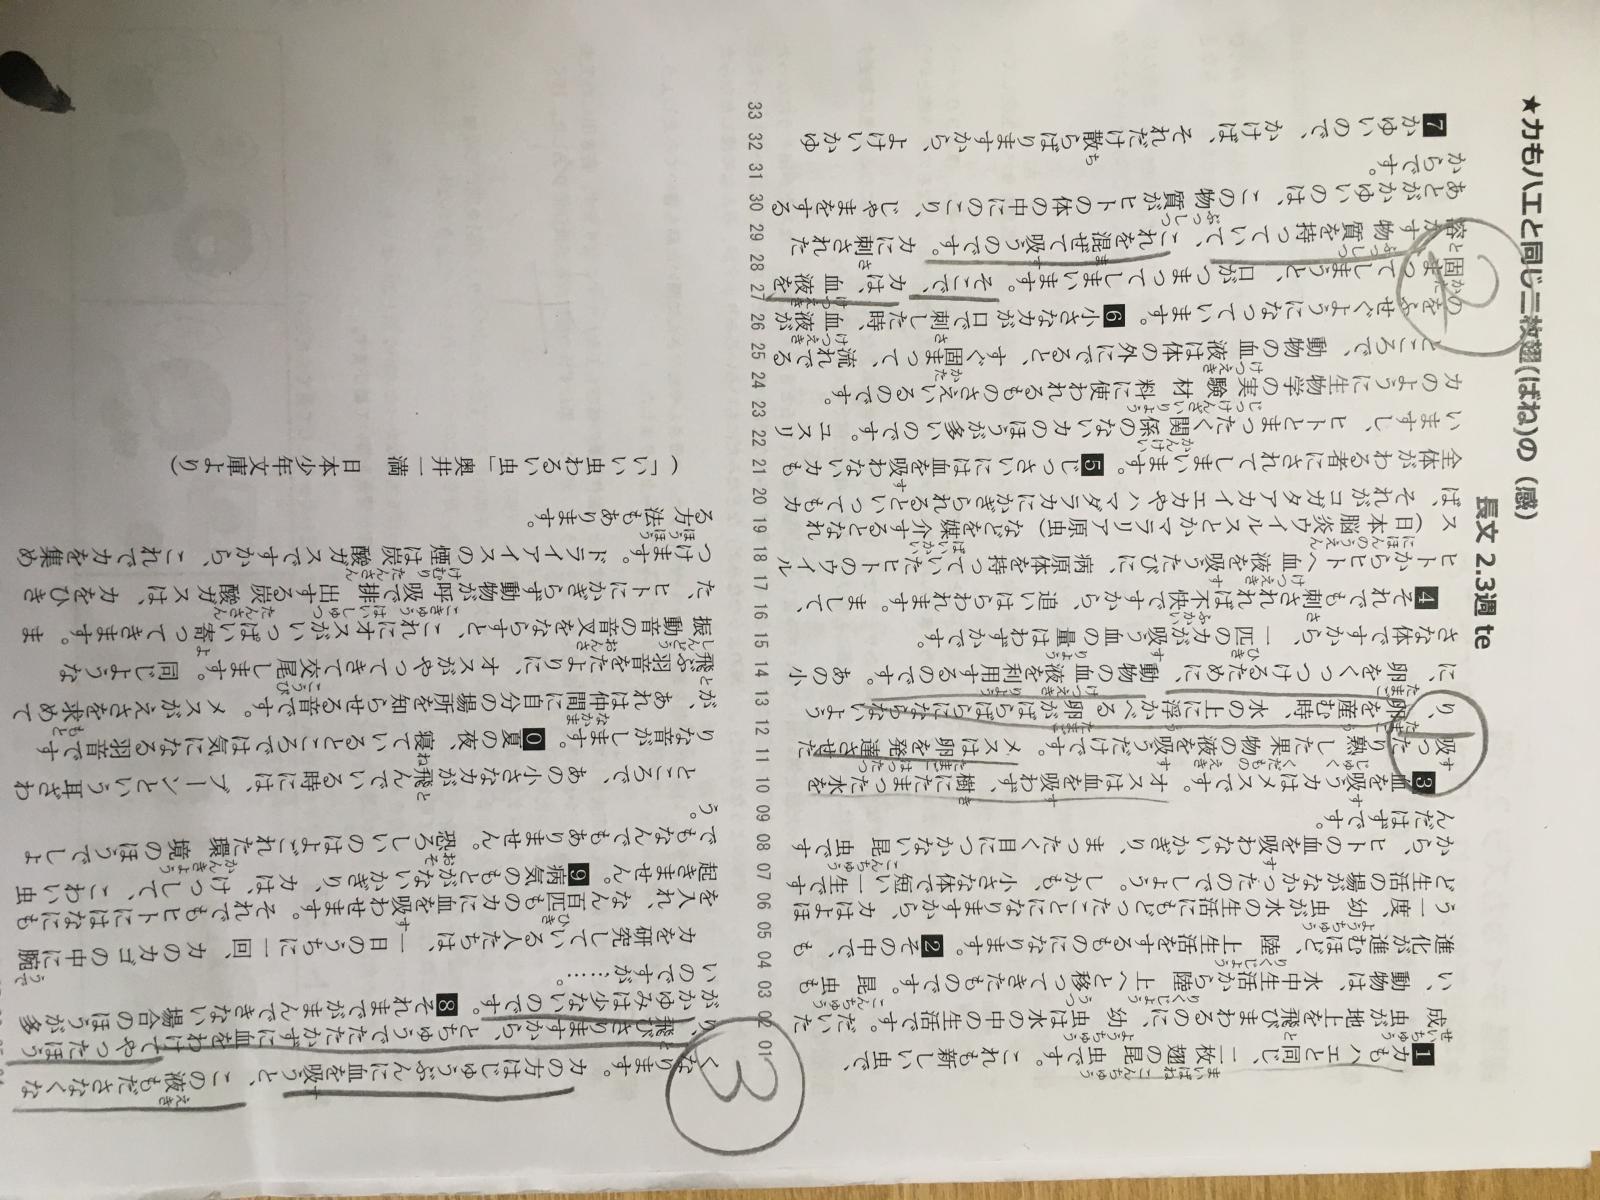 ★カもハエと同じ二枚翅(ばね)の（感）
長文 2.3週 te
1カもハエと同じ、二枚翅の昆虫です。これも新しい虫で、
成虫が地上を飛びまわるのに、幼虫は水の中の生活です。だいた
い、動物は、水中生活から陸上へと移ってきたものです。昆虫も
進化が進むほど、陸上生活をするものになります。2その中で、も
う一度、幼虫が水の生活にもどったことになりますから、カはよほ
ど生活の場がなかったのでしょう。しかも、小さな体で短い一生です
から、ヒトの血を吸わないかぎり、まったく目につかない昆虫です
んだはずです。
3血を吸うカはメスです。オスは血を吸わず、樹にたまった水を
吸ったり熟した果物の液を吸うだけです。メスは卵を発達させた
り、卵を産む時、水の上に浮かべる卵がばらばらにならないよう
に、卵をくっつけるために、動物の血液を利用するのです。あの小
さな体ですから、一匹のカが吸う血の量はわずかです。
4それでも刺されれば不快ですから、追いはらわれます。まして、
ヒトからヒトへ血液を吸うたびに、病原体を持っていたヒトのウイル
ス（日本脳炎ウイルスとかマラリア原虫）などを媒介するとなれ
ば、それがコガタアカイエカやハマダラカにかぎられるといってもカ
全体がわる者にされてしまいます。5じっさいには血を吸わないカも
いますし、ヒトとまったく関係のないカのほうが多いのです。ユスリ
カのように生物学の実験材料に使われるものさえいるのです。
ところで、動物の血液は体の外にでると、すぐ固まって、流れでる
のをふせぐようになっています。6小さなカが口で刺した時、血液が
固まってしまうと、口がつまってしまいます。そこで、カは、血液を
溶かす物質を持っていて、これを混ぜて吸うのです。カに刺された
あとがかゆいのは、この物質がヒトの体の中にのこり、じゃまをする
からです。
7かゆいので、かけば、それだけ散らばりますから、よけいかゆ
01 02 03 04 05 06 07 08 09 10 11 12 13 14 15 16 17 18 19 20 21 22 23 24 25 26 27 28 29 30 31 32 33
くなります。カの方はじゅうぶんに血を吸うと、この液もださなくな
り、飛びさりますから、とちゅうでたたかずに血をわけてやったほう
がかゆみは少ないのです。8それまでがまんできない場合のほうが多
いのですが……。
カを研究している人たちは、一日のうちに一回、カのカゴの中に腕
を入れ、なん百匹ものカに血を吸わせます。それでもヒトにはなにも
起きません。9病気のもとがないかぎり、カは、けっして、こわい虫
でもなんでもありません。恐ろしいのはよごれた環境のほうでしょ
う。
ところで、あの小さなカが飛んでいる時には、ブーンという耳ざわ
りな音がします。0夏の夜、寝ているところでは気になる羽音です
が、あれは仲間に自分の場所を知らせる音です。メスがえさを求めて
飛ぶ羽音をたよりに、オスがやってきて交尾します。同じような
振動音の音叉をならすと、これにオスがいっぱい寄ってきます。ま
た、ヒトにかぎらず動物が呼吸で排出する炭酸ガスは、カをひき
つけます。ドライアイスの煙は炭酸ガスですから、これでカを集め
る方法もあります。
（「いい虫わるい虫」奥井一満　日本少年文庫より）
1
2
3